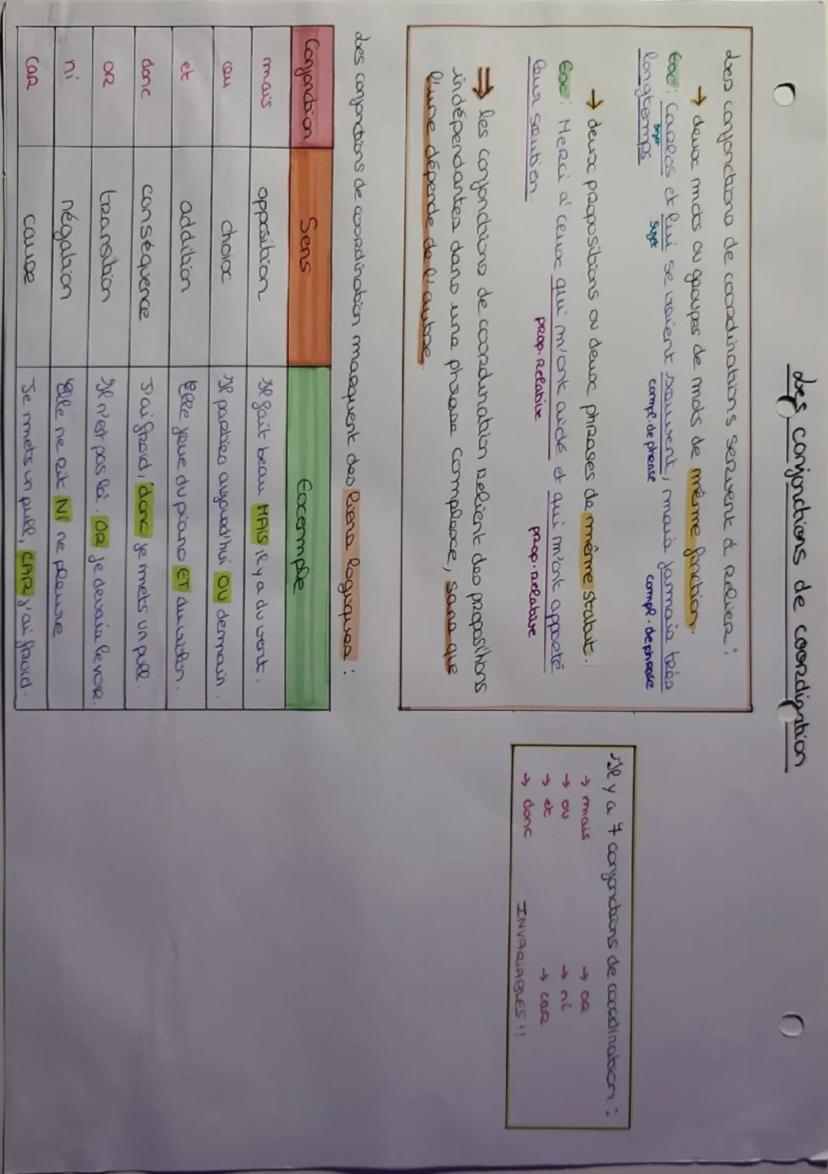 Les conjonctions de coordination
Les conjonctions de coordinations servent à relier :
→ deux mots ou groupes de mots de même fonction.
Ex : Carlos et lui se voient souvent, mais jamais très
sujet sujet compl. de phrase compl. de phrase
longtemps
→ deux propositions ou deux phrases de même statut.
Ex : Merci à ceux qui m'ont aidé et qui m'ont apporté
prop. relative prop. relative
leur soutien
⇒ les conjonctions de coordination relient des propositions
indépendantes dans une phrase complexe, sans que
l'une dépende de l'autre.
Il y a 7 conjonctions de coordination :
→ mais → or
→ ou → ni
→ et → car
→ donc INVARIABLES !!
Les conjonctions de coordination marquent des liens logiques :
Conjonction Sens Exemple
mais opposition Il fait beau MAIS il y a du vent.
ou choix Il partira aujourd'hui OU demain.
et addition Elle joue du piano ET du violon.
donc conséquence J'ai froid, donc je mets un pull.
or transition Il n'est pas là. OR je devais le voir.
ni négation Elle ne rit NI ne pleure
car cause Je mets un pull, CAR j'ai froid.